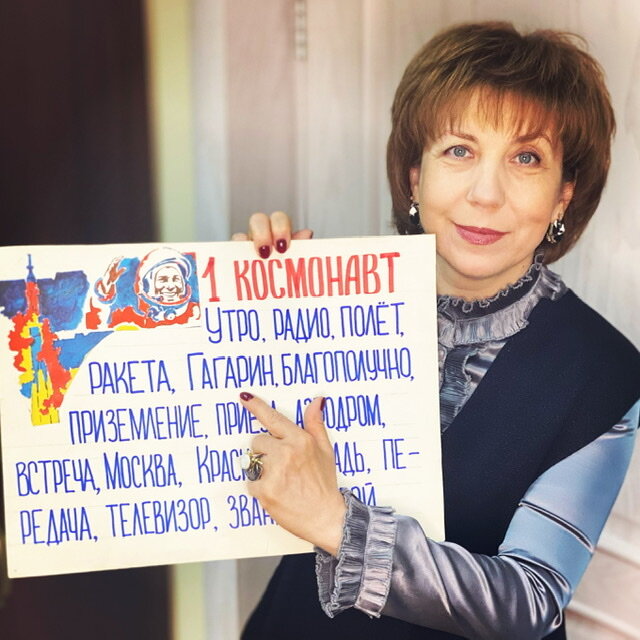 1 КОСМОНАВТ
УТРО, РАДИО, ПОЛЁТ,
РАКЕТА, ГАГАРИН, БЛАГОПОЛУЧНО,
ПРИЗЕМЛЕНИЕ, АЭРОДРОМ,
ВСТРЕЧА, МОСКВА, ПЕ-
РЕДАЧА, ТЕЛЕВИЗОР,